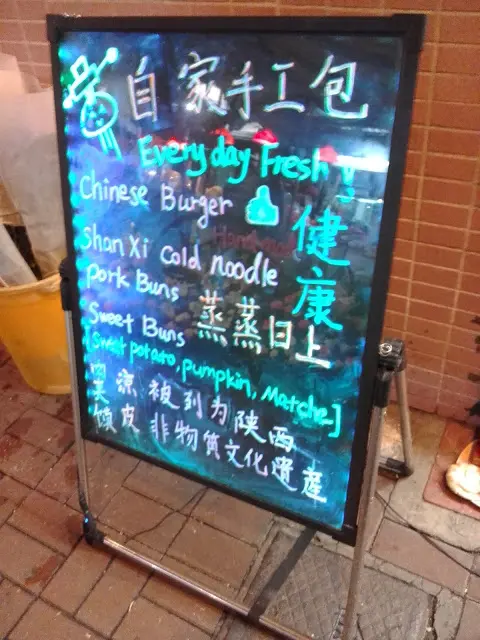 自家手工包
Everyday Fresh!
Chinese Burger
健康
Shan Xi Cold noodle
Pork Buns
Sweet Buns
蒸蒸日上
Sweet potato, pumpkin, Matcha]
凉 被到为陕西
皮 非物質文化遗産